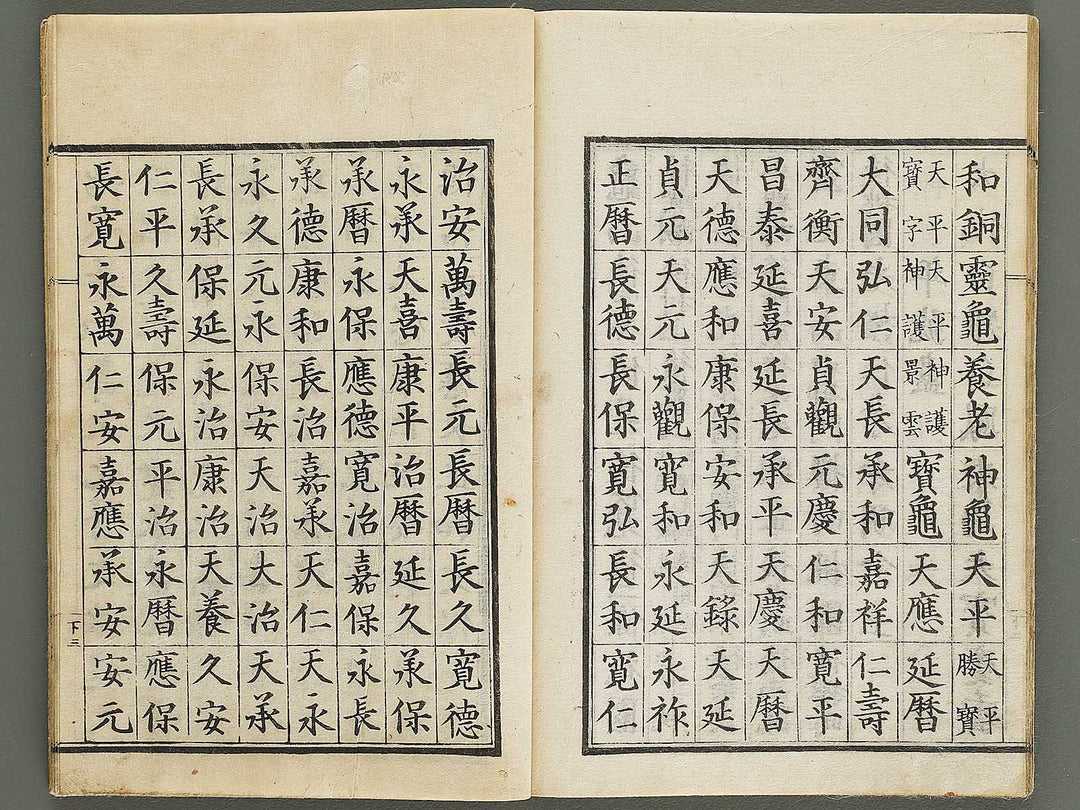 和銅靈龜養老神龜天平天平勝寶
天平寶字天平神護神護景雲寶龜天應延暦
大同弘仁天長承和嘉祥仁壽
齊衡天安貞觀元慶仁和寛平
昌泰延喜延長承平天慶天暦
天德應和康保安和天錄天延
貞元天元永觀寛和永延永祚
正暦長德長保寛弘長和寛仁
治安萬壽長元長暦長久寛德
永承天喜康平治暦延久承保
承暦永保應德寛治嘉保永長
承德康和長治嘉承天仁天永
永久元永保安天治大治天承
長承保延永治康治天養久安
仁平久壽保元平治永暦應保
長寛永萬仁安嘉應承安安元
下三